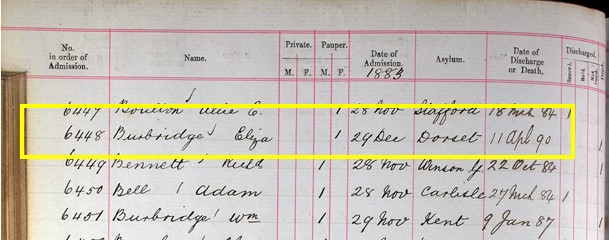 No. in order of Admission. Name. Private. Pauper. Date of Admission Asylum. Date of Discharge or Death. Discharged.
M. F. M. F. 1883 Recov.
6447 Boulton Alice E. 1 28 Nov Stafford 18 Mch 84 1
6448 Burbridge Eliza 1 29 Dec Dorset 11 Apl 90
6449 Bennett Richd 1 28 Nov Winson G. 22 Oct 84
6450 Bell Adam 1 28 Nov Carlisle 27 Mch 84 1
6451 Burbridge Wm 1 29 Nov Kent 9 Jan 87